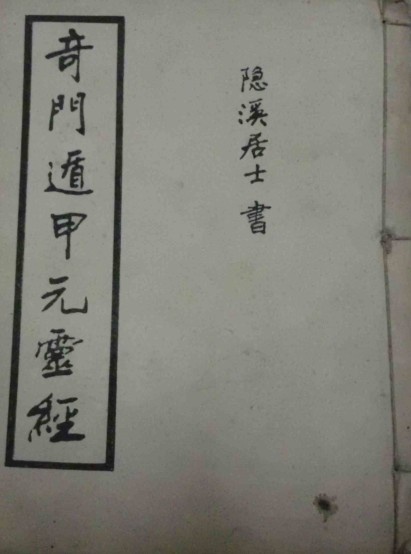 隐溪居士 書
奇門遁甲元靈經